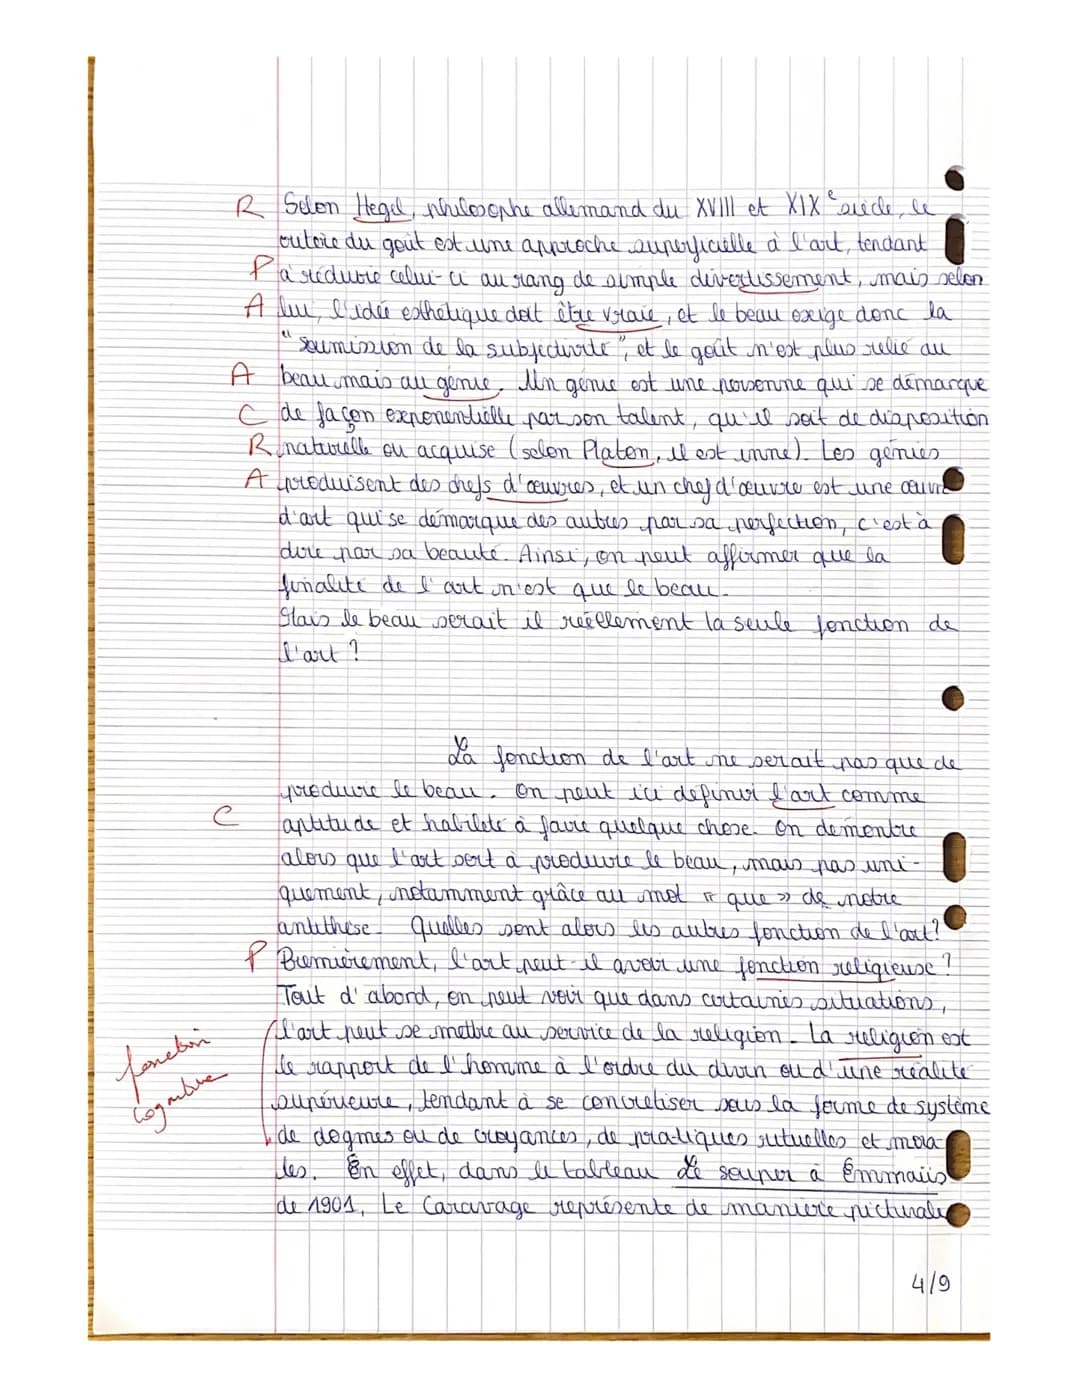 R Selon Hegel, philosophe allemand du XVIII et XIXe siècle, le
critère du goût est une approche superficielle à l'art, tendant
P à réduire celui-ci au rang de simple divertissement, mais selon
A lui, l'idée esthétique doit être vraie, et le beau exige donc la
"soumission de la subjectivité", et le goût n'est plus relié au
A beau mais au génie. Un génie est une personne qui se démarque
C de façon exponentielle par son talent, qu'il soit de disposition
R naturelle ou acquise (selon Platon, il est inné). Les génies
A produisent des chefs d'œuvres, et un chef d'œuvre est une œuvre
d'art qui se démarque des autres par sa perfection, c'est à
dire par sa beauté. Ainsi, on peut affirmer que la
finalité de l'art n'est que le beau.
Mais le beau serait il réellement la seule fonction de
l'art ?
La fonction de l'art ne serait pas que de
produire le beau. On peut ici définir l'art comme
C aptitude et habileté à faire quelque chose. On démontre
alors que l'art sert à produire le beau, mais pas uni-
quement, notamment grâce au mot « que » de notre
antithèse. Quelles sont alors les autres fonction de l'art?
P Premièrement, l'art peut-il avoir une fonction religieuse ?
Tout d'abord, on peut voir que dans certaines situations,
l'art peut se mettre au service de la religion. La religion est
fonction
le rapport de l'homme à l'ordre du divin ou d'une réalité
cognitive
supérieure, tendant à se concrétiser sous la forme de système
de dogmes ou de croyances, de pratiques rituelles et mora
les. En effet, dans le tableau Le souper à Emmaüs
de 1901, Le Caravage représente de manière picturale
4/9